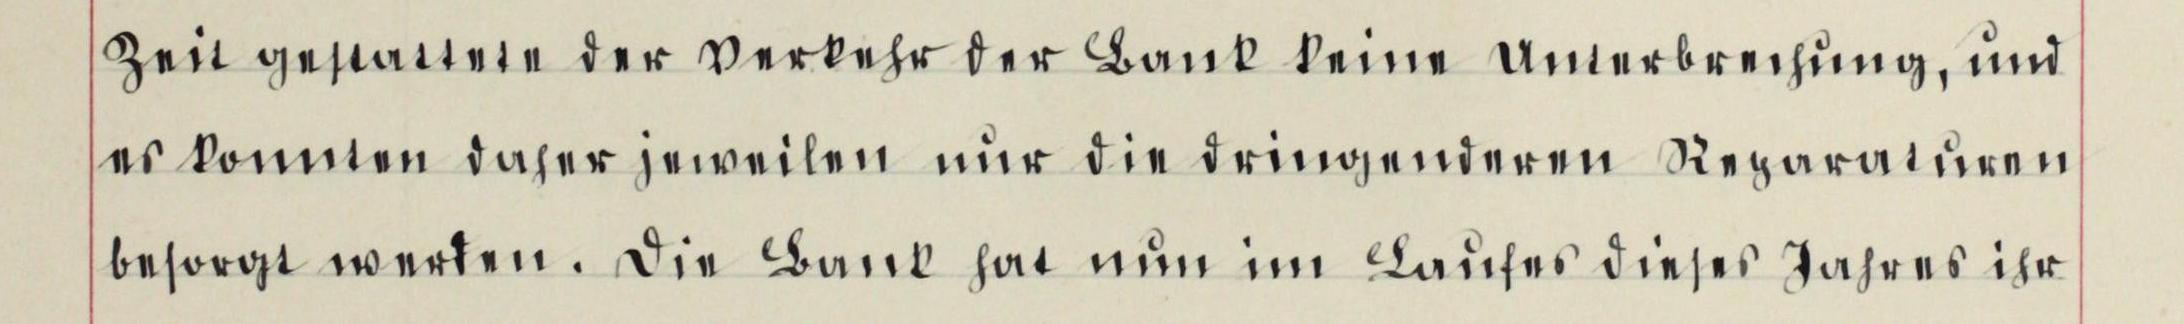 Zeit gestattete der Verkehr der Bank keine Unterbrechung, und
es konnten daher jeweilen nur die dringenderen Reparaturen
besorgt werden. Die Bank hat nun im Laufes dieses Jahres ihr